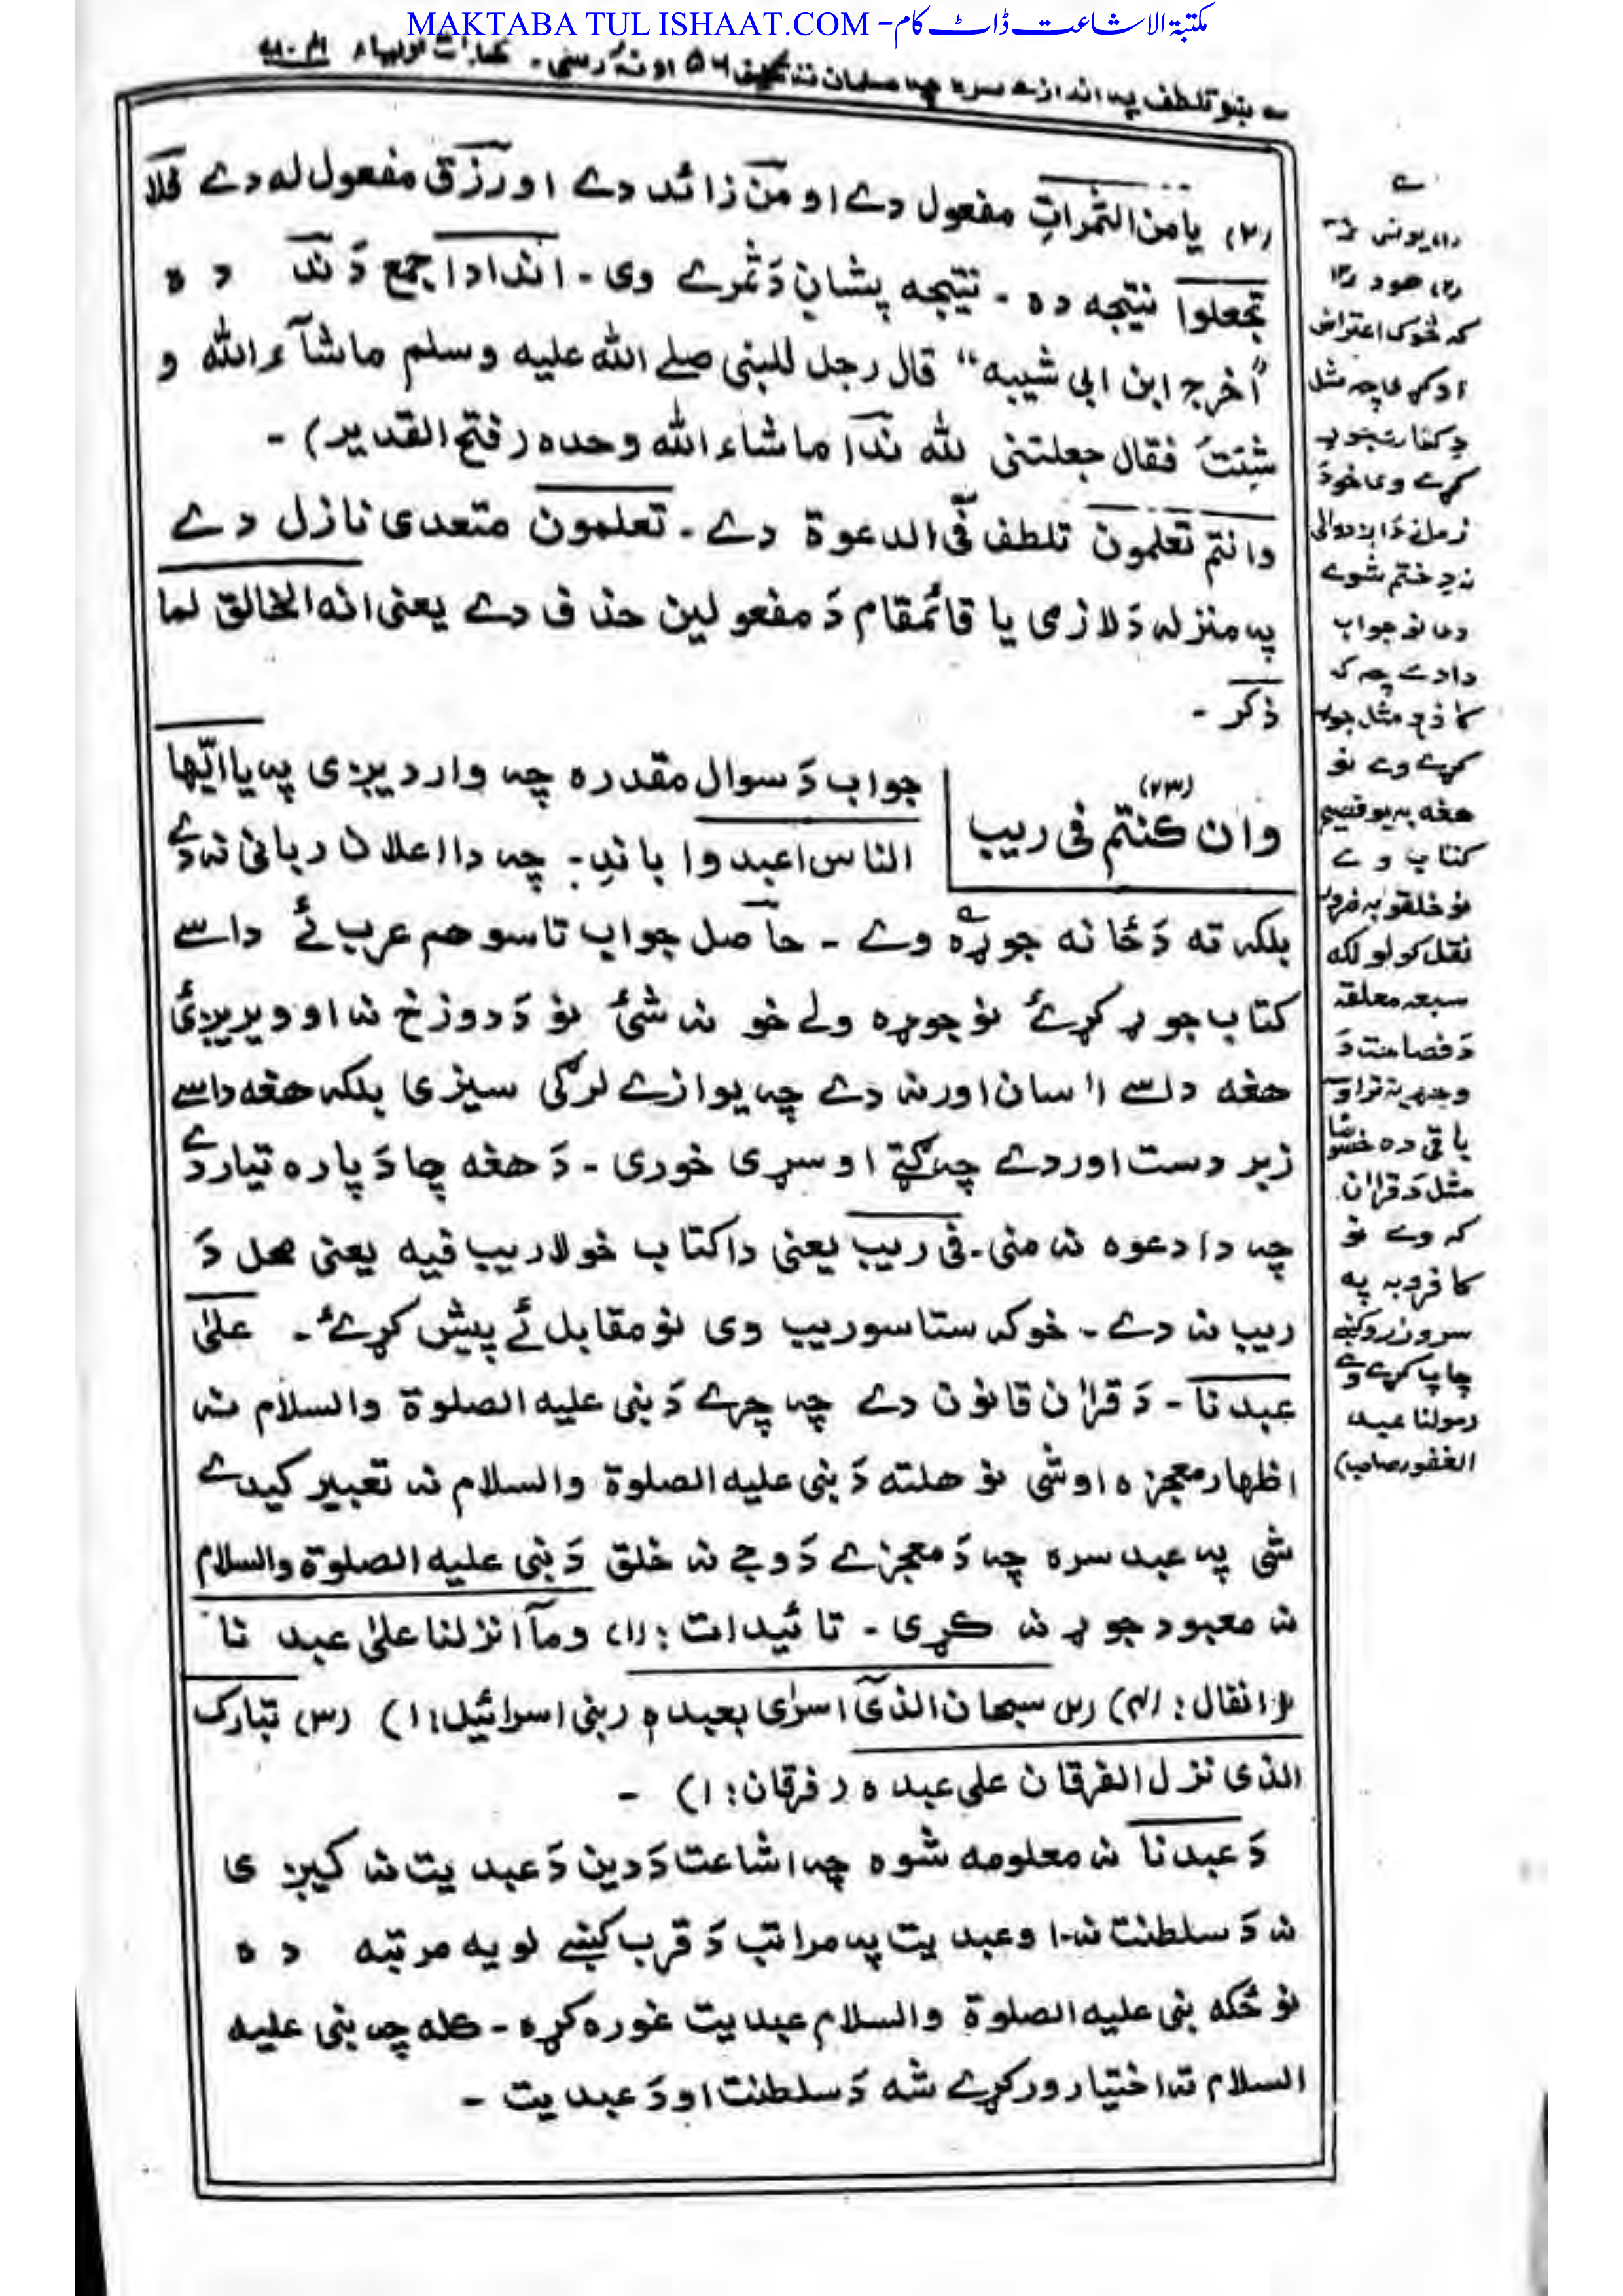 MAKTABA TUL ISHAAT.COM - مکتبۃ الاشاعت ڈاٹ کام
(۲) یا من الثمراتِ مفعول دے او من زائد دے او رزق مفعول له دے فلا
تجعلوا نتیجه ده ـ نتیجه پشانِ دَ ثمرے وی ـ اندادا جمع دَ ند ده
"اخرج ابن ابی شیبه" قال رجل للنبی صلے الله علیه وسلم ماشآء الله و
شئتَ فقال جعلتنی لله ندا ماشاء الله وحده (فتح القدیر) ـ
وانتم تعلمون تلطف فی الدعوة دے ـ تعلمون متعدی نازل دے
په منزله دَ لازمی یا قائمقام دَ مفعولین حذف دے یعنی انه الخالق لما
ذکر ـ
(۲۳)
وان کنتم فی ریب
جواب دَ سوال مقدره چه وارد یږی په یاایّها
الناس اعبدوا باندِ ـ چه دا اعلان ربانی نه دے
بلکه ته دَ ځانه جوړه وے ـ حاصل جواب تاسو هم عرب ئے داسے
کتاب جوړ کړئ نو جوړه ولے خو نه شئ نو دَ دوزخ نه اوویریږئ
هغه داسے اسان اور نه دے چه یوازے لرګی سیزی بلکه هغه داسے
زبردست اور دے چه کټے او سړی خوری ـ دَ هغه چا دَ پاره تیار دے
چه دا دعوه نه منی ـ فی ریب یعنی دا کتاب خو لاریب فیه یعنی محل دَ
ریب نه دے ـ خو که ستاسو ریب وی نو مقابل ئے پیش کړئ ـ علیٰ
عبدنا ـ دَ قرآن قانون دے چه چرے دَ نبی علیه الصلوة والسلام نه
اظهار معجزه اوشی نو هلته دَ نبی علیه الصلوة والسلام نه تعبیر کیدے
شی په عبد سره چه دَ معجزے دَ وجے نه خلق دَ نبی علیه الصلوة والسلام
نه معبود جوړ نه کړی ـ تائیدات : (۱) ومآ انزلنا علیٰ عبدنا
(انفال : ۴۱) (۲) سبحان الذی اسرٰی بعبده (بنی اسرائیل : ۱) (۳) تبارک
الذی نزل الفرقان علی عبده (فرقان : ۱) ـ
دَ عبدنا نه معلومه شوه چه اشاعت دَ دین دَ عبدیت نه کیږی
نه دَ سلطنت نه ـ او عبدیت په مراتب دَ قرب کښے لویه مرتبه ده
نو ځکه نبی علیه الصلوة والسلام عبدیت غوره کړه ـ کله چه نبی علیه
السلام ته اختیار ورکړے شه دَ سلطنت او دَ عبدیت ـ
که څوک اعتراض
اوکړی چه مثل
کړے وی خو دَ
ختم شوے
وی نو جواب
دا دے چه که
کړے وے نو
هغه به یو فصیح
کتاب وے
نو خلقو به ضرور
نقل کولو لکه
سبعه معلقه
دَ فصاحت دَ
وجے نه تراوسه
باقی ده
مثل دَ قرآن
که وے نو
کافرو به په
سرو زرو کښے
چاپ کړے وے
(مولنا عبد
الغفور صاحب)